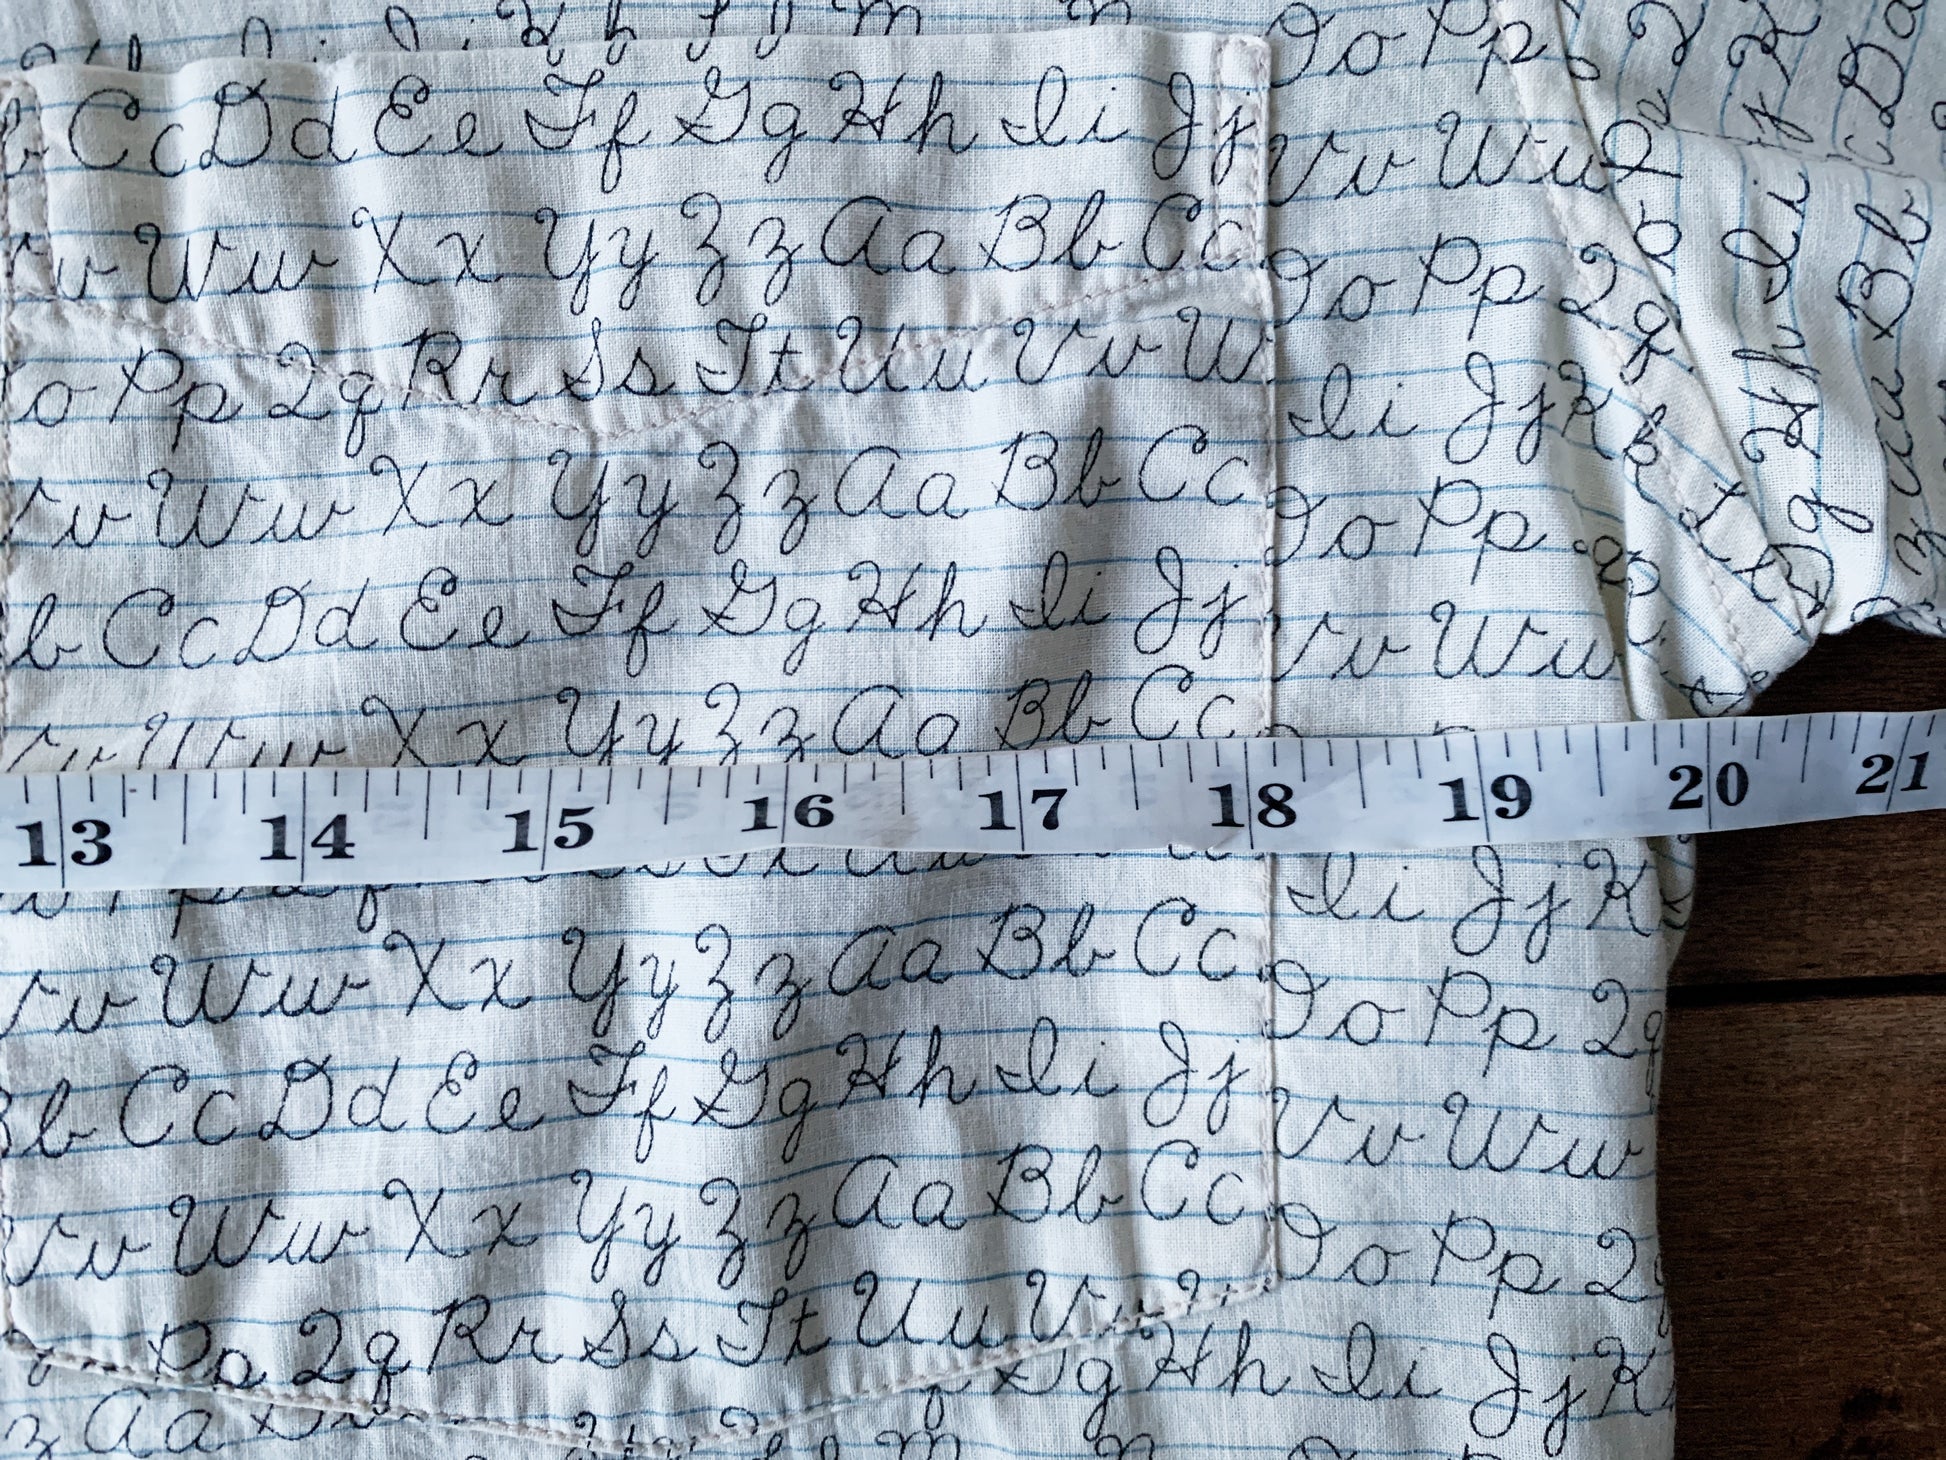 Cc Dd Ee Ff Gg Hh Ii Jj
Ww Xx Yy Zz Aa Bb Cc
o Pp Qq Rr Ss Tt Uu Vv W
v Ww Xx Yy Zz Aa Bb Cc
b Cc Dd Ee Ff Gg Hh Ii Jj
Xx Yy Zz Aa Bb Cc
13 14 15 16 17 18 19 20 21
v Ww Xx Yy Zz Aa Bb Cc
b Cc Dd Ee Ff Gg Hh Ii Jj
v Ww Xx Yy Zz Aa Bb Cc
Pp Qq Rr Ss Tt Uu Vv
z Aa
Gg Hh Ii Jj K
Oo Pp
Vv Ww
Oo Pp Qq
Ii Jj Kk
Oo Pp
Vv Ww
Ii Jj K
Oo Pp Qq
Vv Ww
Oo Pp Q
Ii
Gg Hh
Aa Bb